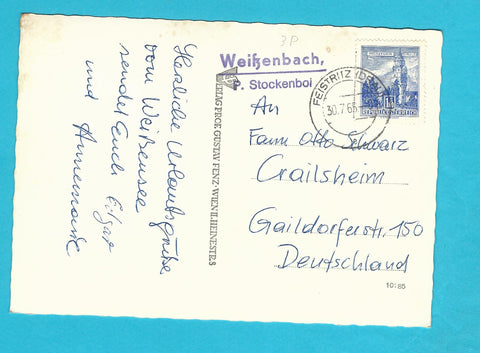 Herzliche Urlaubsgrüße
vom Weißensee
sendet Euch Edgar
und Annemarie
VERLAG PROF. GUSTAV FENZ · WIEN II. HEINESTR. 8
3P
Weißenbach,
P. Stockenboi
FEISTRITZ
30.7.65
REPUBLIK ÖSTERREICH
An
Fam. Otto Schwarz
Crailsheim
Gaildorferstr. 150
Deutschland
10:85